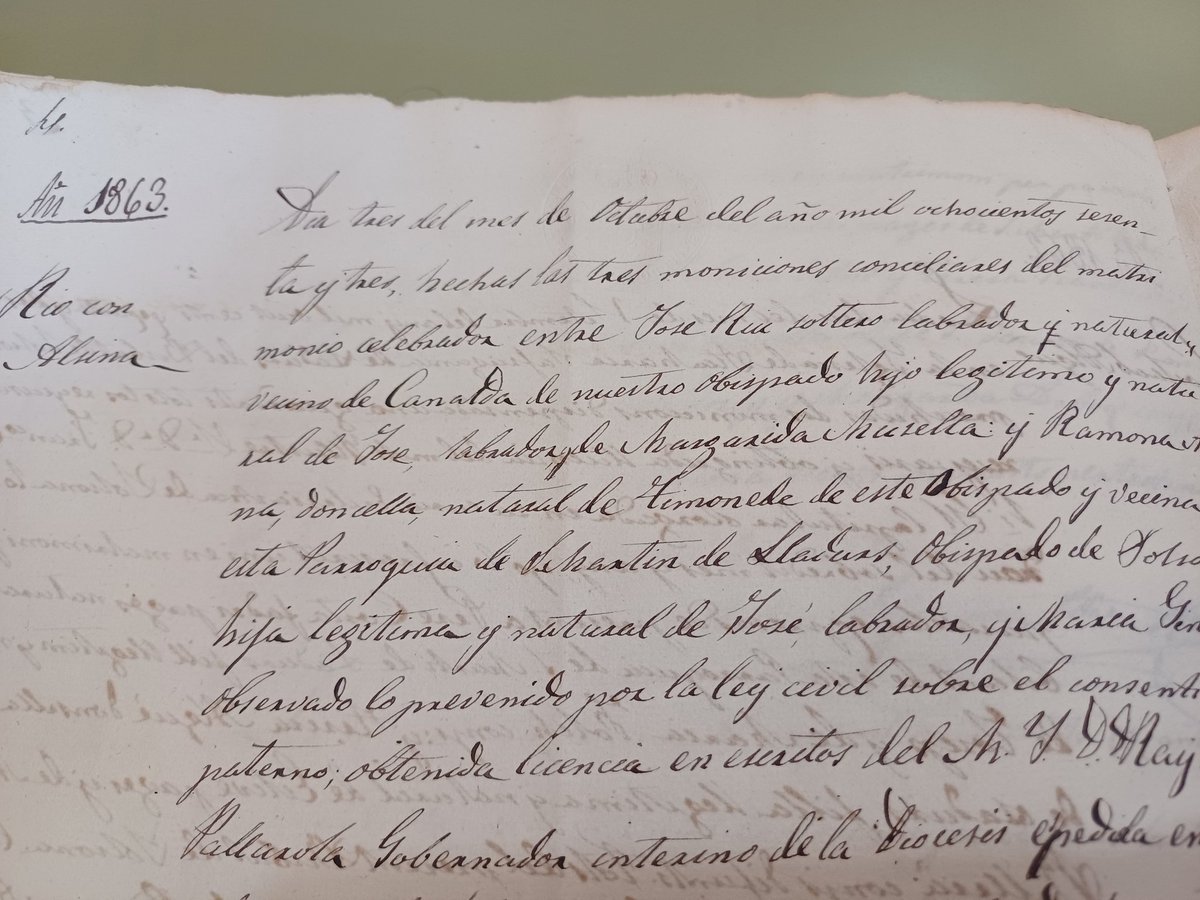 Añ 1863.
Riu con
Alsina
Dia tres del mes de Octubre del año mil ochocientos sesen-
ta y tres, hechas las tres moniciones conciliares del matri
monio celebrador entre Jose Riu soltero labrador y natural y
vecino de Canalda de nuestro obispado hijo legitimo y natu
ral de Jose, labrador, y de Margarida Musella: y Ramona
na, doncella, natural de Timoneda de este Obispado y vecina
esta Parroquia de S. Martin de Lladurs, Obispado de Solso
hija legitima y natural de José, labrador, y Maria
observado lo prevenido por la ley civil sobre el consenti
paterno; obtenida licencia en escritos del M. Y. D.
Pallarola Gobernador interino de la Diocesis epedida en